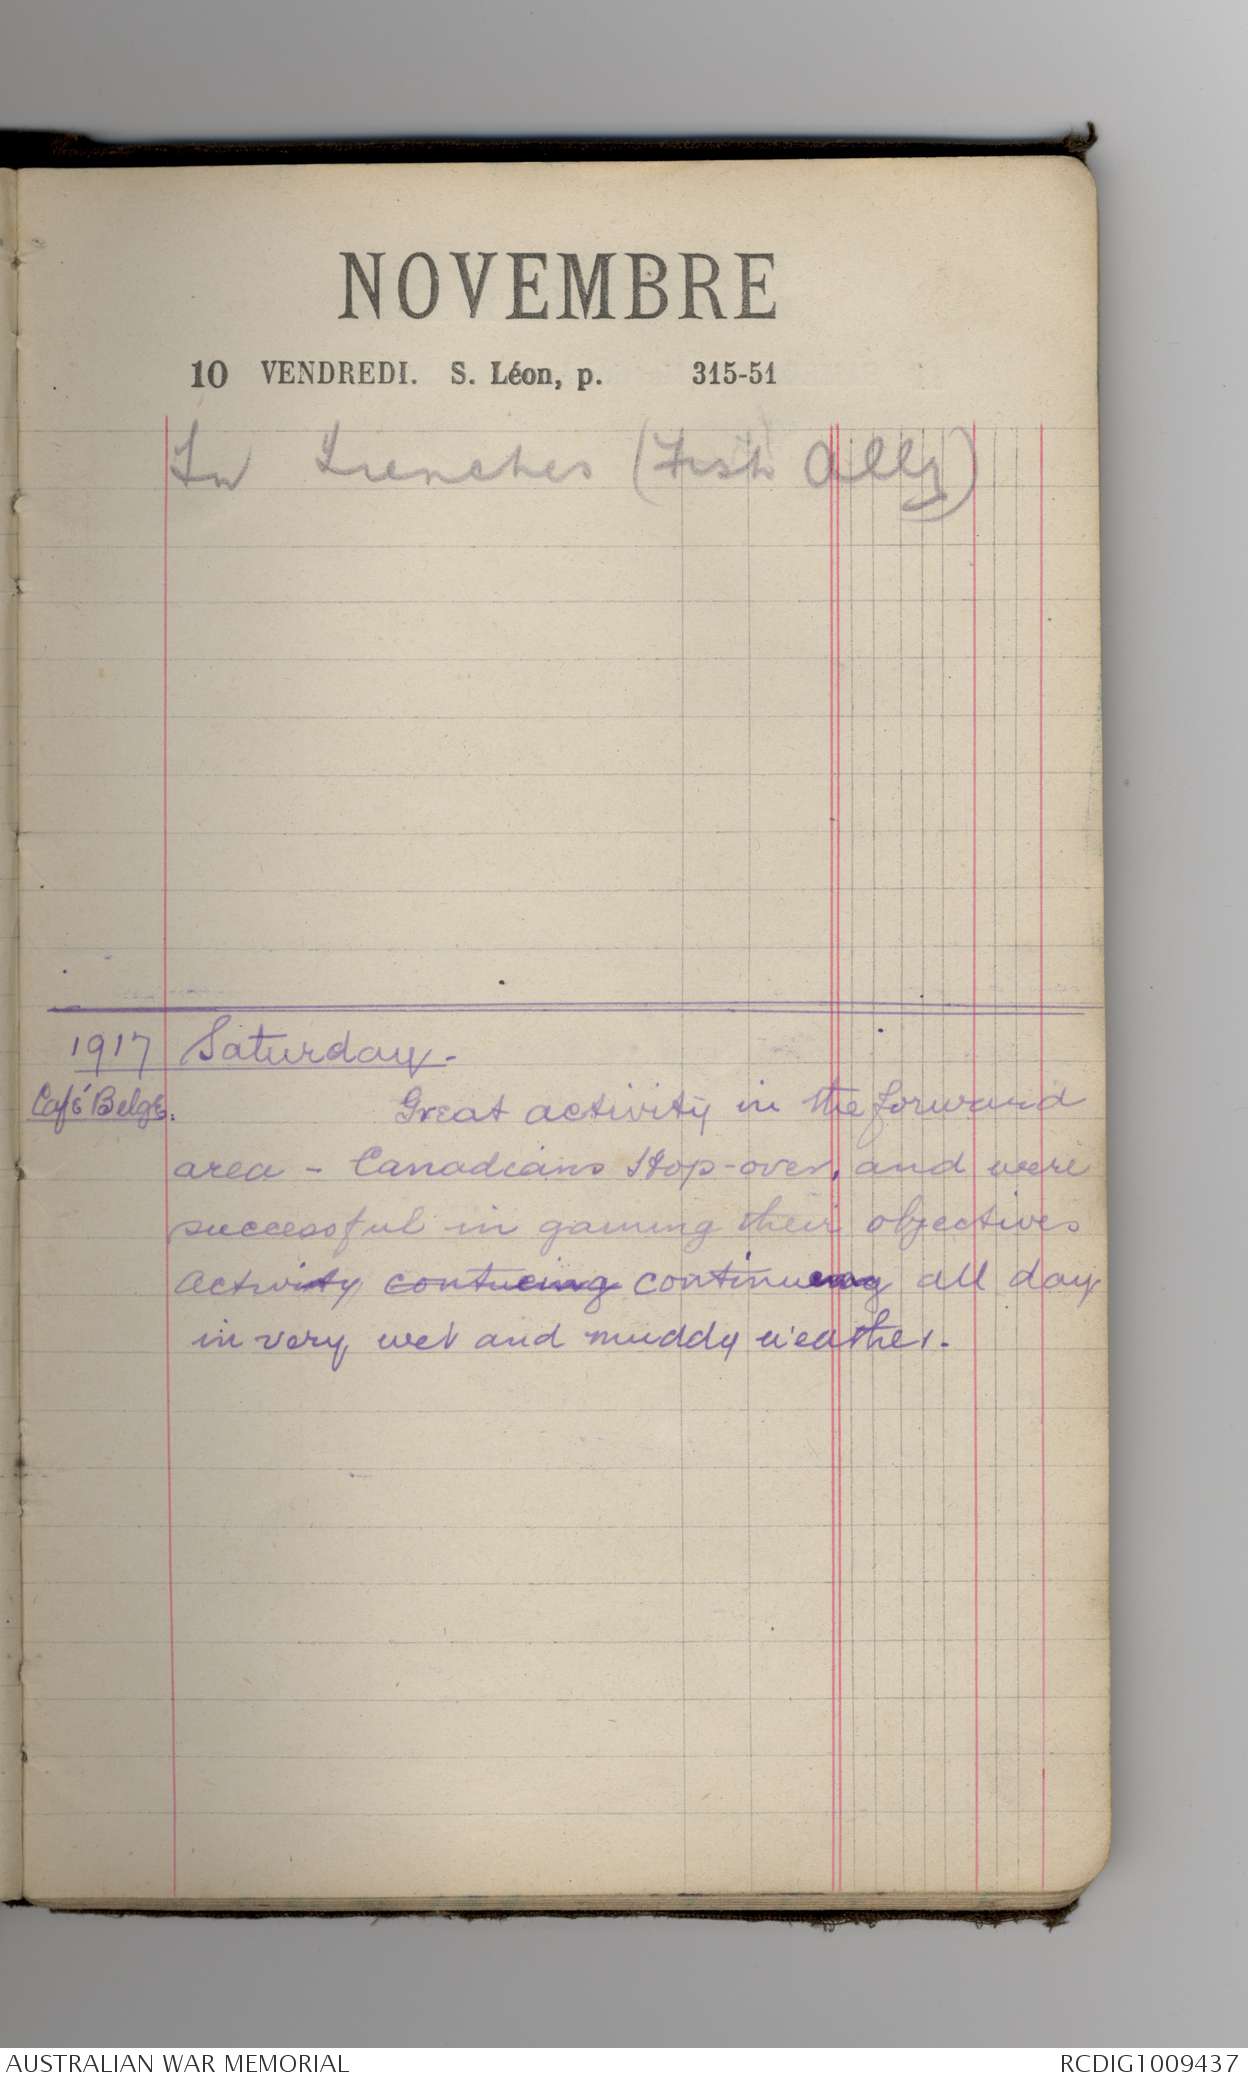 NOVEMBRE
10 VENDREDI. S. Léon, p. 315-51
In Trenches (Fish Ally)
1917 Saturday.-
Café Belge. Great activity in the forward
area - Canadians Hop-over, and were
successful in gaining their objectives
Activity contueing continueing all day
in very wet and muddy weather.
AUSTRALIAN WAR MEMORIAL
RCDIG1009437